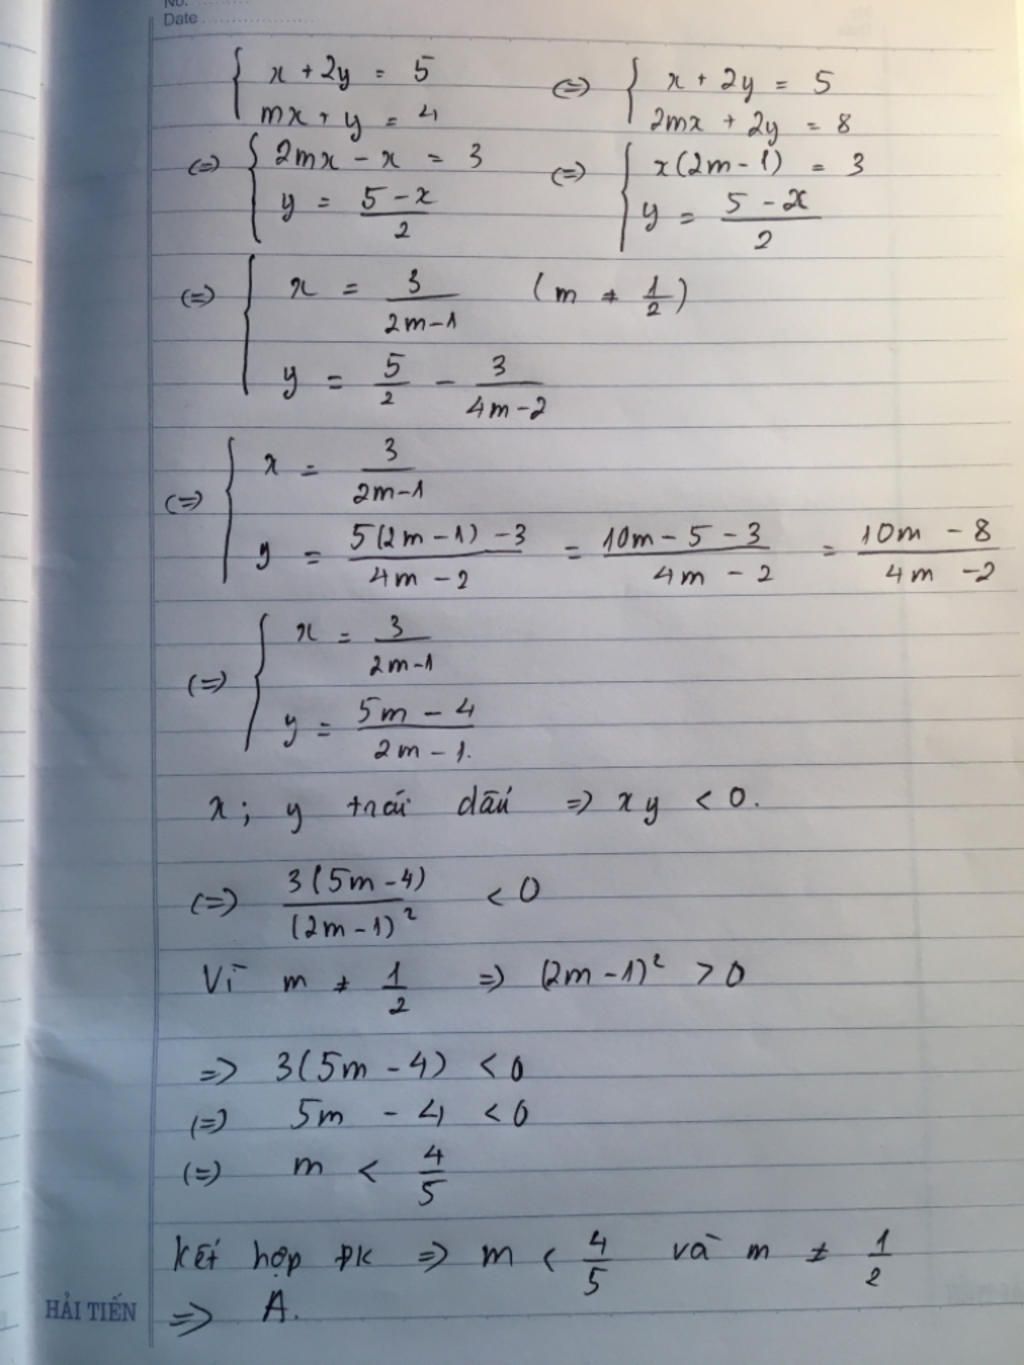 No.
Date
{ x + 2y = 5 (=) { x + 2y = 5
mx + y = 4 2mx + 2y = 8
(=) { 2mx - x = 3 (=) { x(2m - 1) = 3
y = \frac{5 - x}{2} y = \frac{5 - x}{2}
(=) { x = \frac{3}{2m-1} (m ≠ \frac{1}{2})
y = \frac{5}{2} - \frac{3}{4m-2}
(=) { x = \frac{3}{2m-1}
y = \frac{5(2m-1)-3}{4m-2} = \frac{10m-5-3}{4m-2} = \frac{10m-8}{4m-2}
(=) { x = \frac{3}{2m-1}
y = \frac{5m-4}{2m-1}.
x; y trái dấu => xy < 0.
(=) \frac{3(5m-4)}{(2m-1)²} < 0
Vì m ≠ \frac{1}{2} => (2m-1)² > 0
=> 3(5m - 4) < 0
(=) 5m - 4 < 0
(=) m < \frac{4}{5}
Kết hợp ĐK => m < \frac{4}{5} và m ≠ \frac{1}{2}
=> A.
HẢI TIẾN